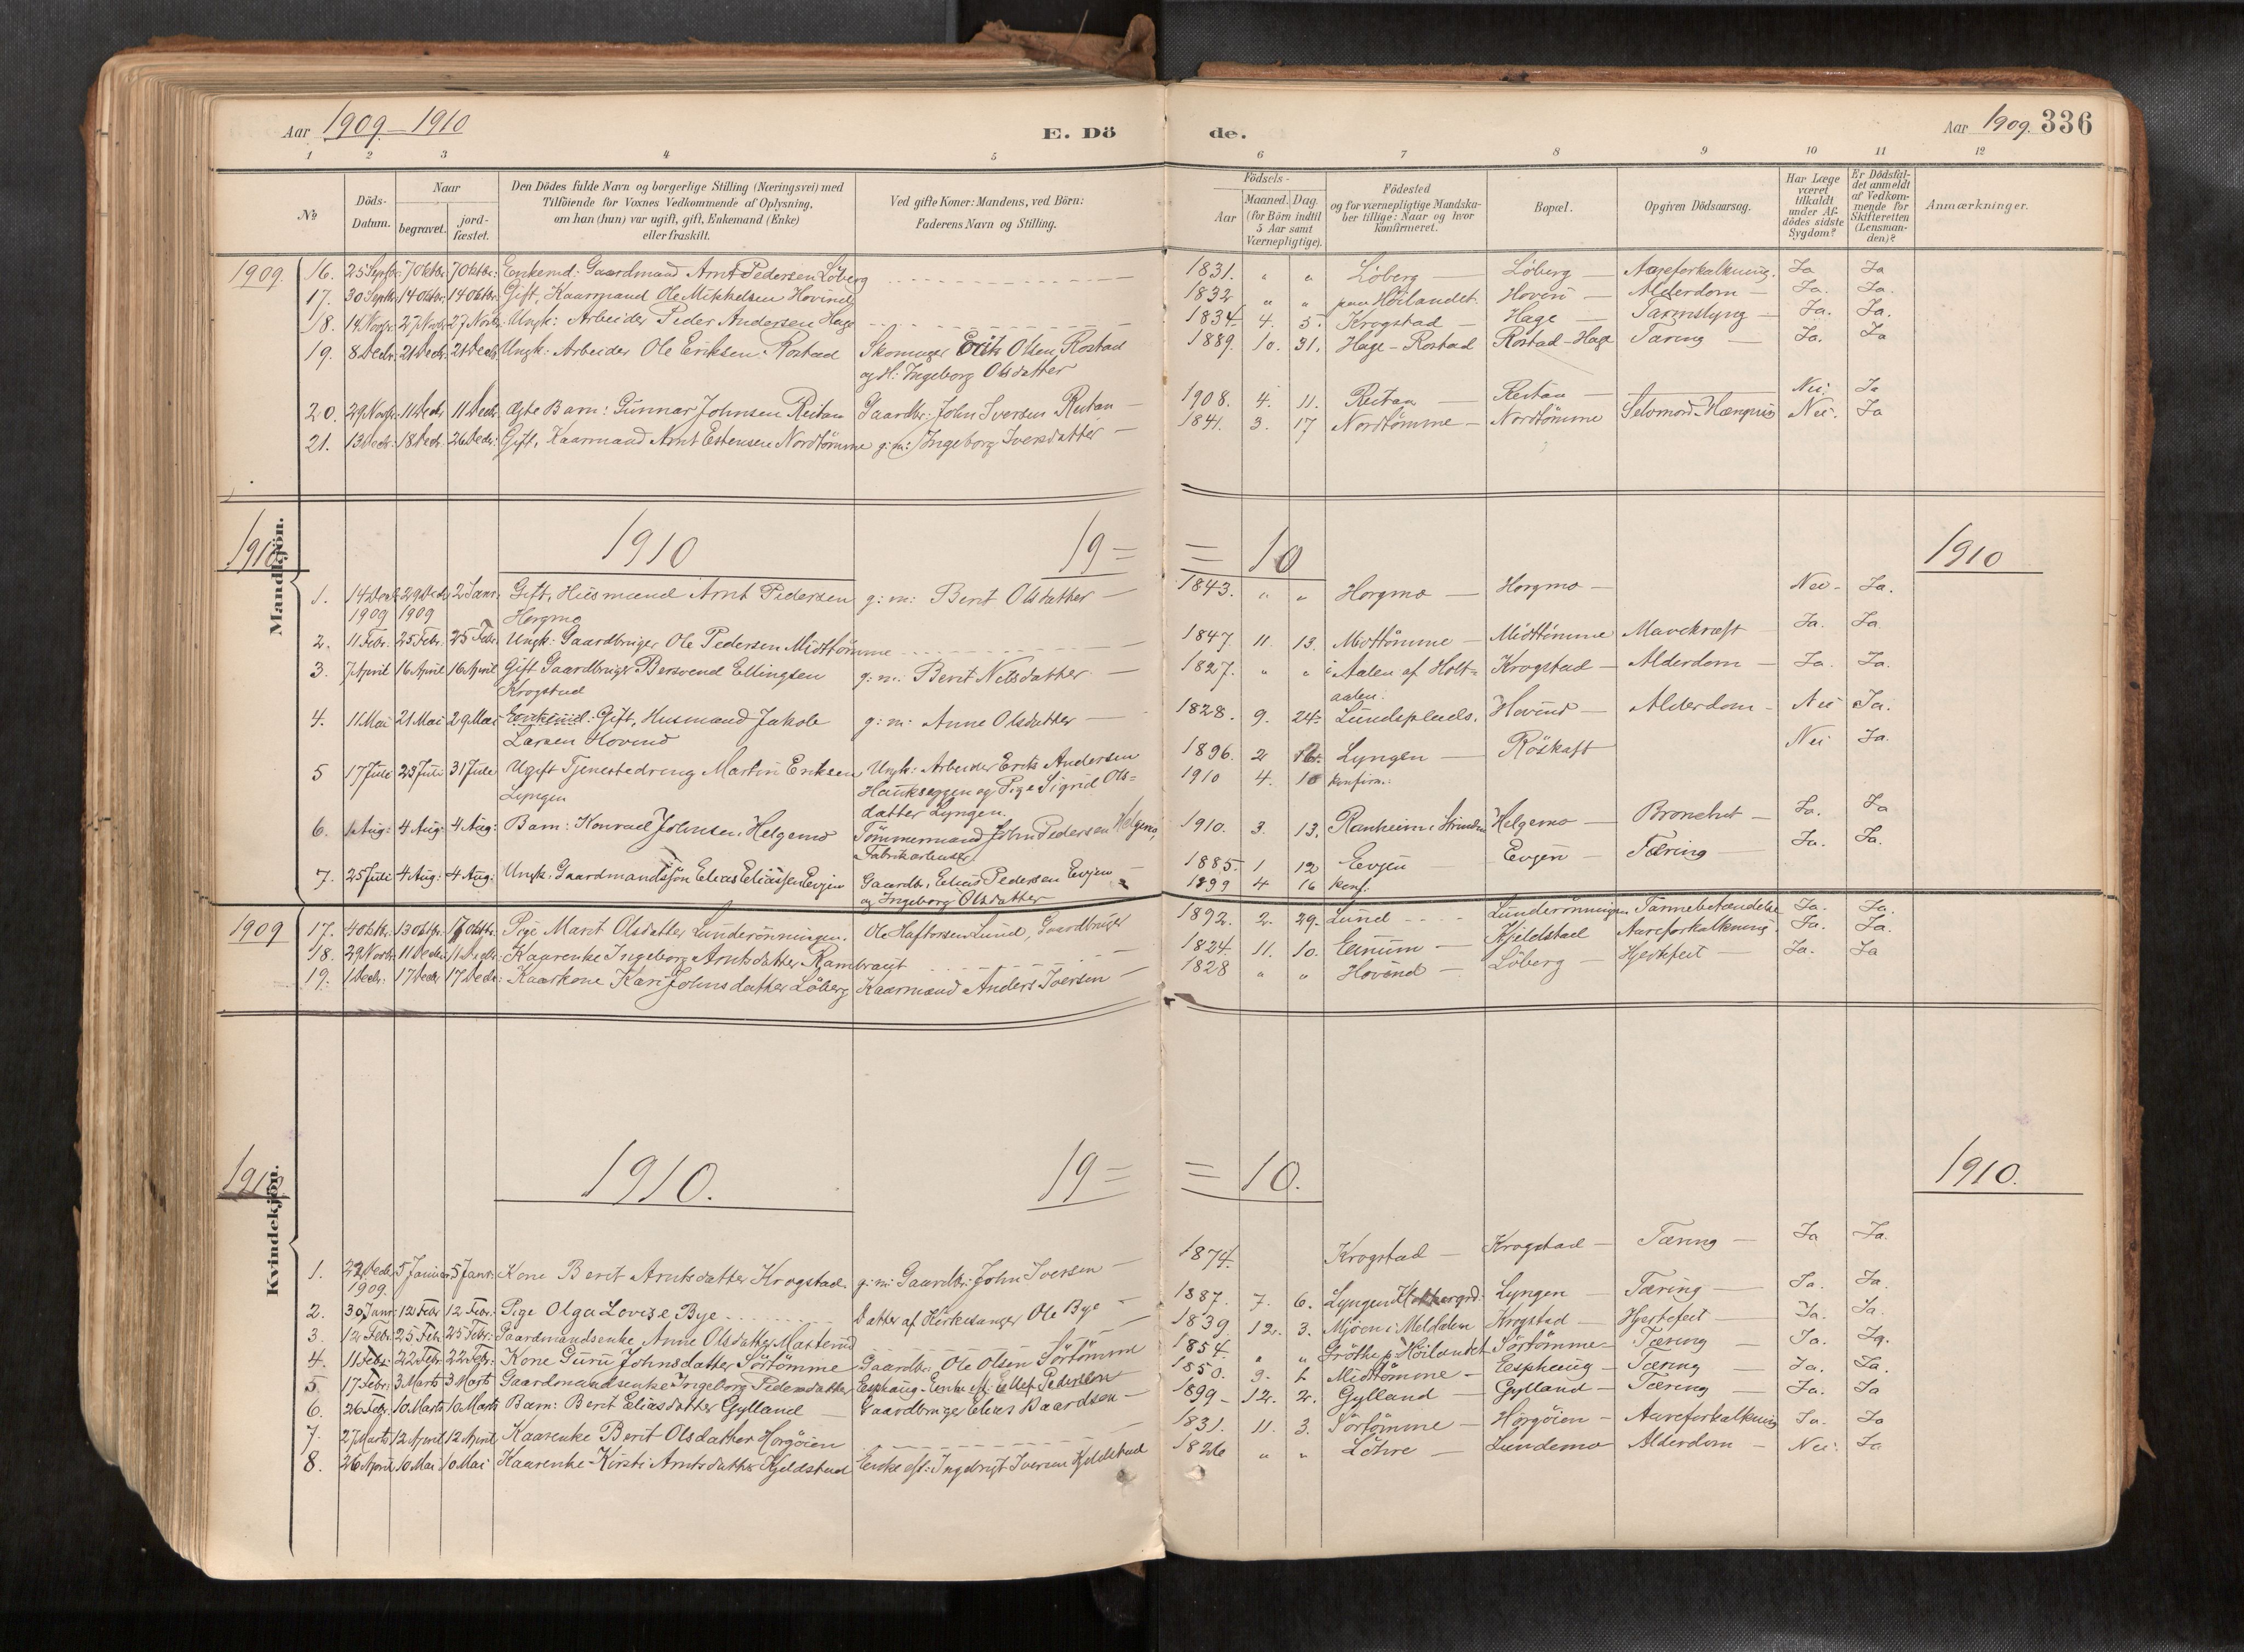 Aar 1909 - 1910 E. Dö de. Aar 1909. 336
1 2 3 4 5 6 7 8 9 10 11 12
№ Döds-Datum. Naar begravet. jordfæstet. Den Dödes fulde Navn og borgerlige Stilling (Næringsvei) med Tilföiende for Voxnes Vedkommende af Oplysning, om han (hun) var ugift, gift, Enkemand (Enke) eller fraskilt. Ved gifte Koner: Mandens, ved Börn: Faderens Navn og Stilling. Födsels- Aar Maaned. Dag (for Börn indtil 5 Aar samt Værnepligtige). Födested og for værnepligtige Mandskaber tillige: Naar og hvor Konfirmeret. Bopæl. Opgiven Dödsaarsag. Har Læge været tilkaldt under Afdödes sidste Sygdom? Er Dödsfaldet anmeldt af Vedkommende for Skifteretten (Lensmanden)? Anmærkninger.
Mandkjön.
1909. 16. 25 Septbr. 7 Oktbr. 7 Oktbr. Enkemd: Gaardmand Arnt Pedersen Löberg 1831. " " Löberg — Löberg — Aareforkalkning. Ja Ja
17. 30 Septbr. 14 Oktbr. 14 Oktbr. Gift, Kaarmand Ole Mikkelsen Hovind 1832 " " paa Höilandet. Hovin — Alderdom — Ja. Ja.
18. 14 Novbr. 27 Novbr. 27 Novbr. Ungk: Arbeider Peder Andersen Hage 1834. 4. 5. Krogstad — Hage — Tarmslyng — Ja. Ja.
19. 8 Decbr. 21 Decbr. 21 Decbr. Ungk: Arbeider Ole Eriksen Rostad Skomager Erik Olsen Rostad 1889. 10. 31. Hage - Rostad Rostad-Hage Tæring — Ja. Ja
og H: Ingeborg Olsdatter
20. 29 Novbr. 11 Decbr. 11 Decbr. Ægte Barn: Gunnar Johnsen Reitan Gaardbr: John Iversen Reitan — 1908. 4. 11. Reitan — Reitan — Nei. Ja
21. 13 Decbr. 18 Decbr. 26 Decbr. Gift, Kaarmand Arnt Estensen Nordtömme g: m: Ingeborg Iversdatter — 1841. 3. 17 Nordtömme — Nordtömme Selvmord - Hængning Nei. Ja
1910 1910 19 = = 10 1910
1. 14 Decbr. 29 Decbr. 2 Janr. Gift, Husmand Arnt Pedersen g: m: Berit Olsdatter — 1843. " " Horgmo — Horgmo — Nei - Ja.
1909 1909 Horgmo
2. 11 Febr. 25 Febr. 25 Febr. Ungk. Gaardbruger Ole Pedersen Midttömme 1847. 11. 13. Midttömme — Midttömme Mavekræft Ja. Ja.
3. 7 April 16 April 16 April Gift Gaardbruger Bersvend Ellingsen g: m: Berit Nilsdatter — 1827. " " i Aalen af Holt= Krogstad — Alderdom — Ja. Ja.
Krogstad aalen.
4. 11 Mai 21 Mai 29 Mai Enkemd: Gift, Husmand Jakob g: m: Anne Olsdatter — 1828. 9. 24. Lundsplads. Hovind — Alderdom - Nei Ja.
Larsen Hovind
5 17 Juli 23 Juli 31 Juli Ugift Tjenestedreng Martin Eriksen Ungk: Arbeider Erik Andersen 1896. 2 16. Lyngen — Röskaft Nei Ja.
Lyngen Haukseggen og Pige Sigrid Ols= 1910 4. 10 konfirm.:
datter Lyngen.
6. 1 Aug: 4 Aug: 4 Aug: Barn: Konrad Johnsen Helgemo Tömmermand John Pedersen Helgemo, 1910. 3. 13. Ranheim i Strinden Helgemo — Bronchit — Ja. Ja
7. 25 Juli 4 Aug: 4 Aug: Ungk. Gaardmandssön Elias Eliassen Evjen Gaardbr. Elias Pedersen Evjen — 1885. 1 12 Evjen Evjen — Tæring — Ja. Ja.
og Ingeborg Olsdatter 1899 4 16 konf.
Kvindekjön.
1909 17. 4 Oktbr. 13 Oktbr. 17 Oktbr. Pige Marit Olsdatter Lunderönningen. Ole Haftorsen Lund, Gaardbruger 1892. 2. 29. Lund Lunderönningen Tarmebetændelse Ja. Ja.
18. 29 Novbr. 11 Decbr. 11 Decbr. Kaarenke Ingeborg Arntsdatter Rambraut 1824. 11. 10. Eenum — Kjeldstad Aareforkalkning Ja. Ja.
19. 1 Decbr. 17 Decbr. 17 Decbr. Kaarkone Kari Johnsdatter Löberg Kaarmand Anders Iversen — 1828 " " Hovind — Löberg — Hjertfeil — Ja. Ja
1910 1910. 19 = = 10. 1910.
1. 22 Decbr. 5 Januar 5 Janr. Kone Berit Arntsdatter Krogstad. g: m: Gaardbr: John Iversen — 1874. Krogstad — Krogstad — Tæring — Ja Ja.
1909.
2. 30 Janr. 12 Febr. 12 Febr. Pige Olga Lovise Bye Datter af Kirkesanger Ole Bye — 1887. 7. 6. Lyngen Lyngen — Tæring — Ja. Ja.
3. 12 Febr. 25 Febr. 25 Febr. Gaardmandsenke Anne Olsdatter 1839. 12. 3. Mjöen i Meldalen Krogstad — Hjertefeil — Ja. Ja.
4. 11 Febr. 22 Febr. 22 Febr. Kone Guru Johnsdatter Sörtömme Gaardbr. Ole Olsen Sörtömme 1854. " " Gröthe p. Höilandet Sörtömme — Tæring — Ja. Ja.
5. 17 Febr. 3 Marts 3 Marts Gaardmandsenke Ingeborg Pedersdatter Esphaug - Enke ef: Ellef Pedersen 1850. 9. Midttömme — Esphaug — Tæring — Ja. Ja.
6. 26 Febr. 10 Marts 10 Marts Barn: Berit Eliasdatter Gylland — Gaardbruger Elias Baardsen — 1899 - 12. 2. Gylland — Gylland — Tæring — Ja. Ja
7. 27 Marts 12 April 12 April Kaarenke Berit Olsdatter Horgöien 1831. 11. 3. Sörtömme — Horgöien — Aareforkalkning Ja. Ja
8. 26 April 10 Mai 10 Mai Kaarenke Kirsti Arntsdatter Kjeldstad Enke eft: Ingebrigt Iversen Kjeldstad 1826 " " Löhre — Lundemo Alderdom — Nei. Ja